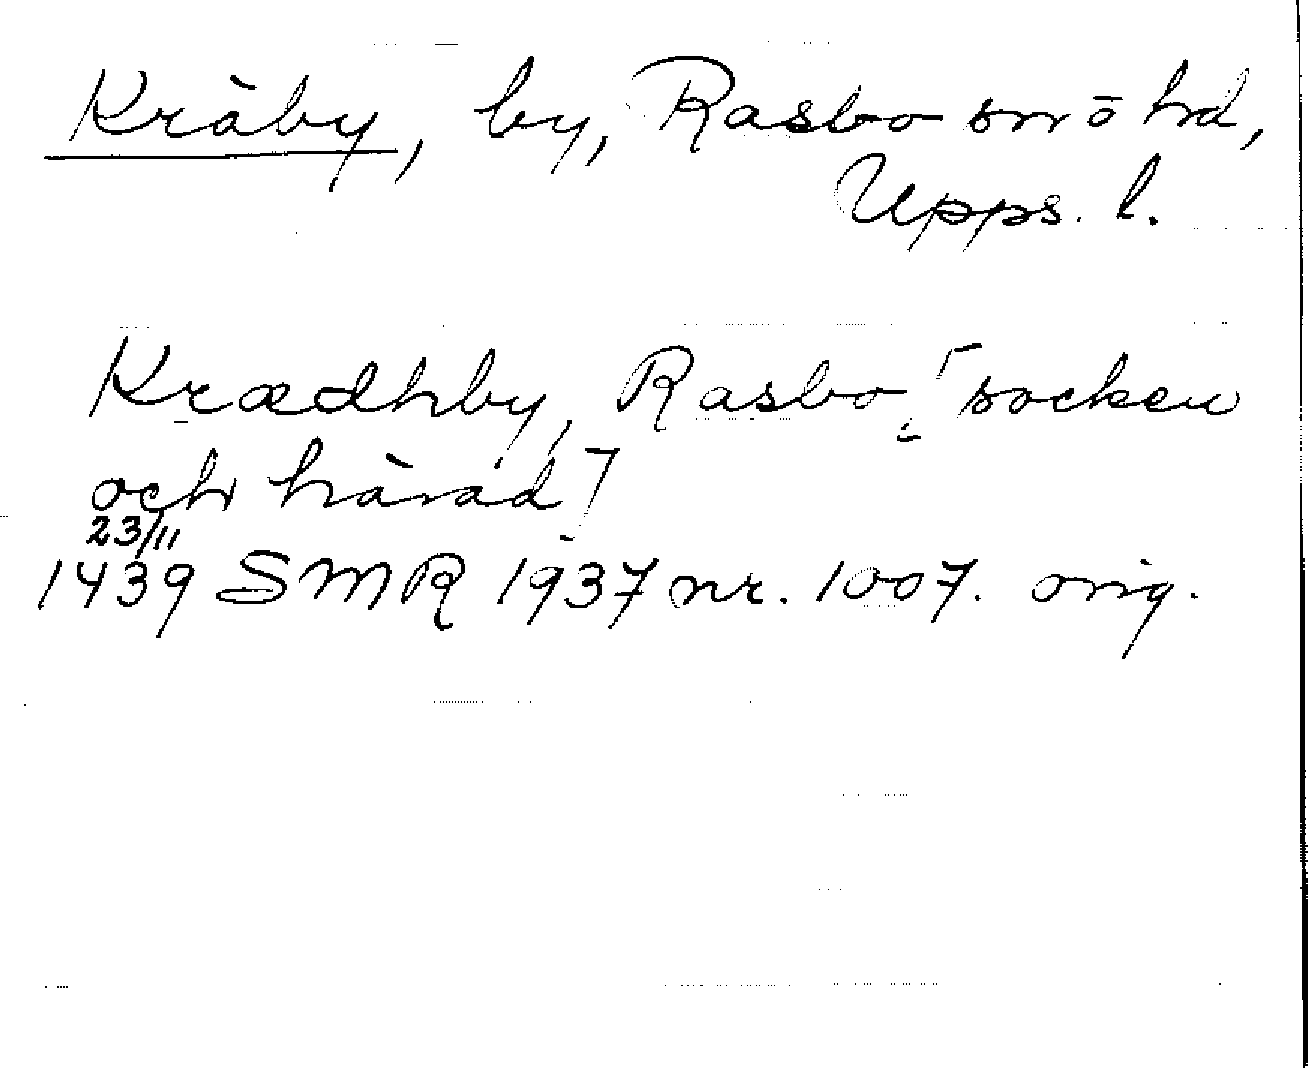 Kräby, by, Rasbo sn o hd,
Upps. l.
Krædhby, Rasbo [socken
och härad]
23/11
1439 SMR 1937 nr. 1007. orig.